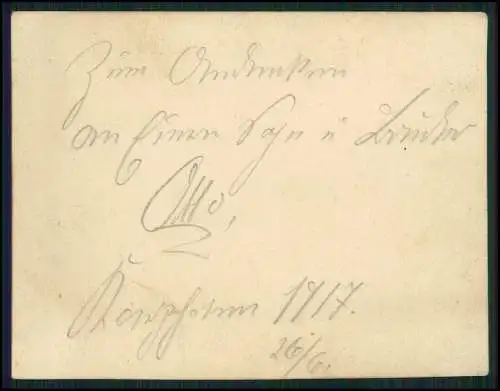 Zum Andenken
an Euren Sohn u Bruder
Otto,
1917.
26/6.